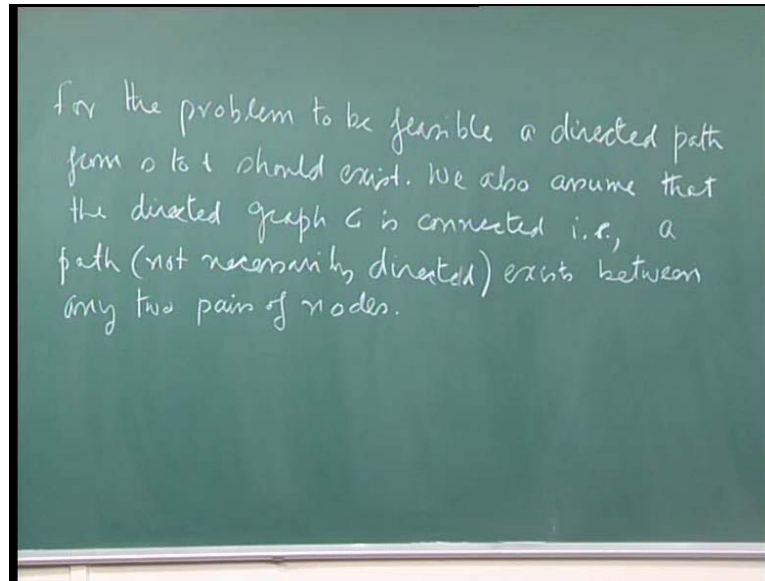 for the problem to be feasible a directed path
from s to t should exist. We also assume that
the directed graph G is connected i.e., a
path (not necessarily directed) exists between
any two pair of nodes.